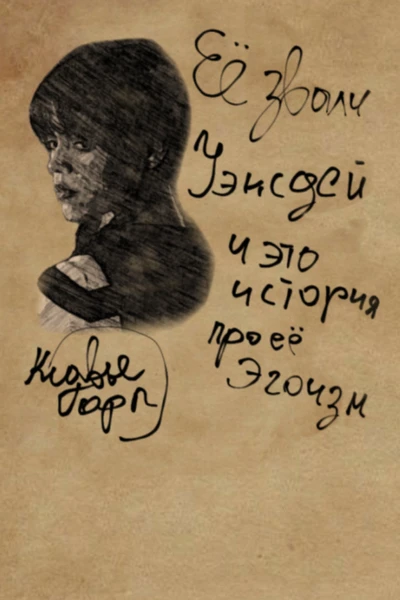 Её звали
Уэнсдей
и это
история
про её
Эгоизм
Ксавье
Торп